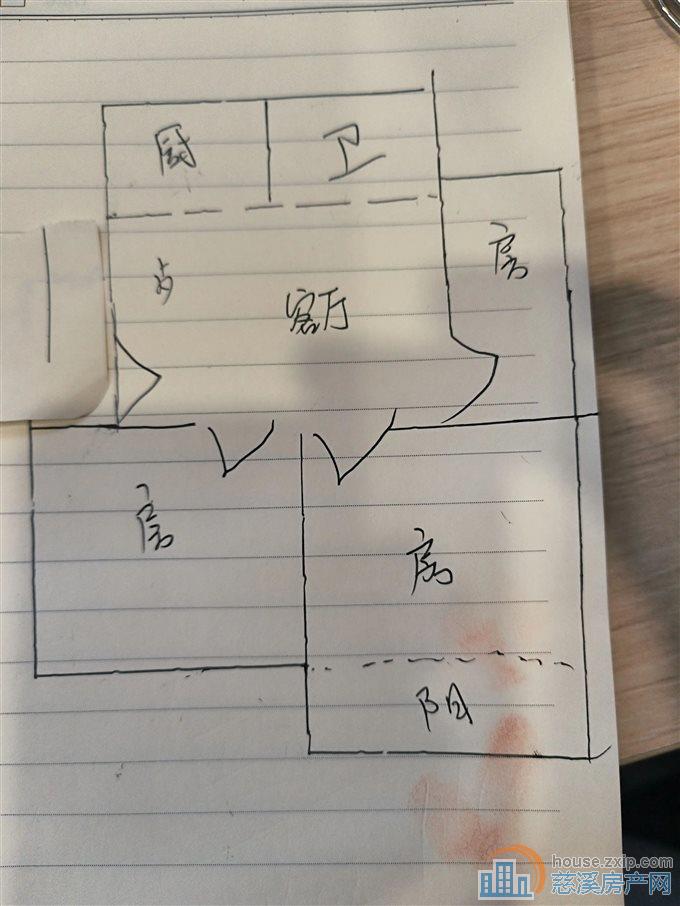 厨
卫
房
客厅
房
房
阳
house.zxip.com
慈溪房产网